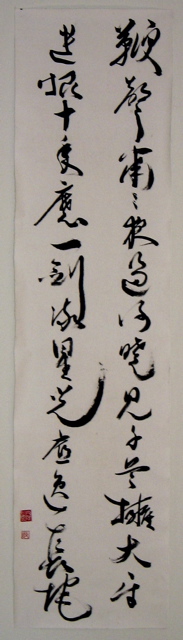 鞭聲肅〻夜過河曉見千兵擁大牙
遺恨十年磨一劍流星光底逸長蛇